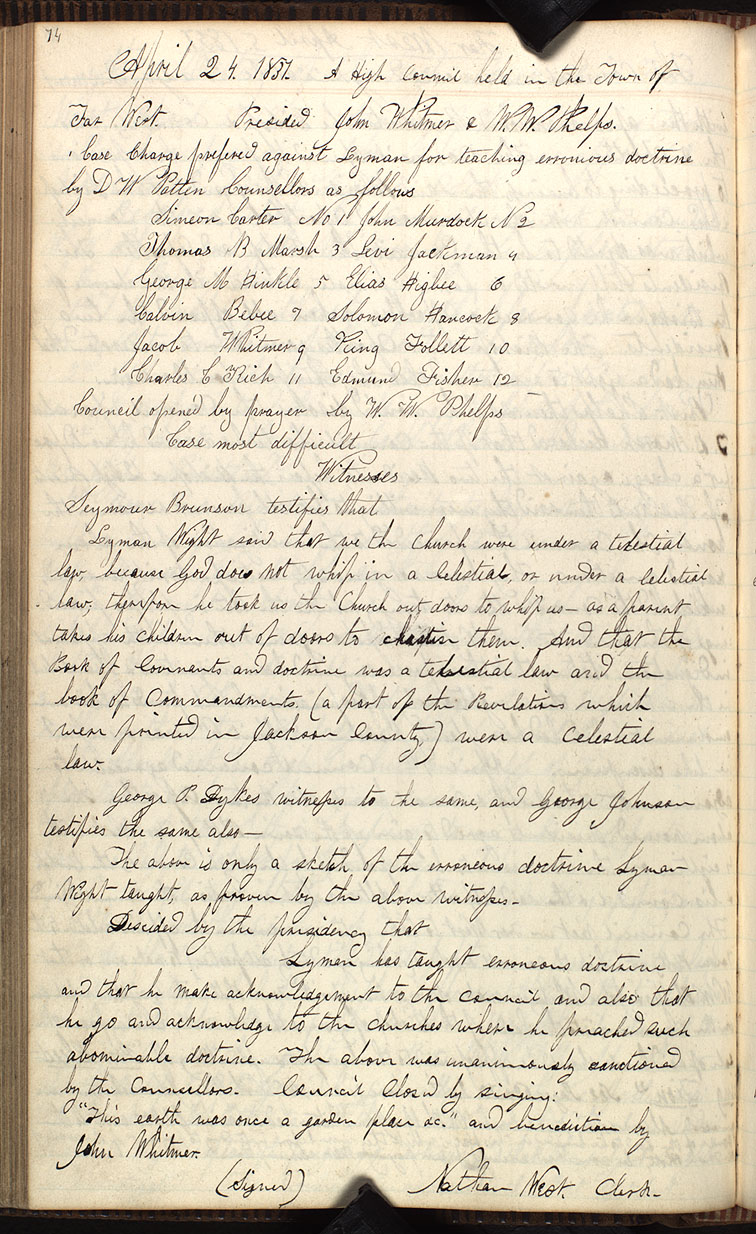 74
April 24. 1837. A High Council held in the Town of
Far West. Presided John Whitmer & W. W. Phelps.
Case Charge prefered against Lyman for teaching erronious doctrine
by D W Patten Counsellors as follows
Simeon Carter No 1 John Murdock No 2
Thomas B Marsh 3 Levi Jackman 4
George M Hinkle 5 Elias Higbee 6
Calvin Bebee 7 Solomon Hancock 8
Jacob Whitmer 9 King Follett 10
Charles C Rich 11 Edmund Fisher 12
Council opened by prayer by W. W. Phelps
Case most difficult
Witnesses
Seymour Brunson testifies that
Lyman Wight said that we the Church were under a telestial
law, because God does not whip in a Celestial, or under a Celestial
law, therefore he took us the Church out doors to whip us — as a parent
takes his children out of doors to chastise them. And that the
Book of Covenants and doctrine was a telestial law and the
book of Commandments. (a part of the Revelations which
were printed in Jackson County,) were a Celestial
law.
George P. Dykes witnesses to the same, and George Johnson
testifies the same also—
The above is only a sketch of the erroneous doctrine Lyman
Wight taught, as proven by the above witnesses.
Descided by the presidency that
Lyman has taught erroneous doctrine
and that he make acknowledgement to the council and also that
he go and acknowledge to the churches where he preached such
abominable doctrine. The above was unanimously sanctioned
by the Councellors. Council Closed by singing:
"This earth was once a garden place &c." and benediction by
John Whitmer.
(Signed) Nathan West. Clerk.